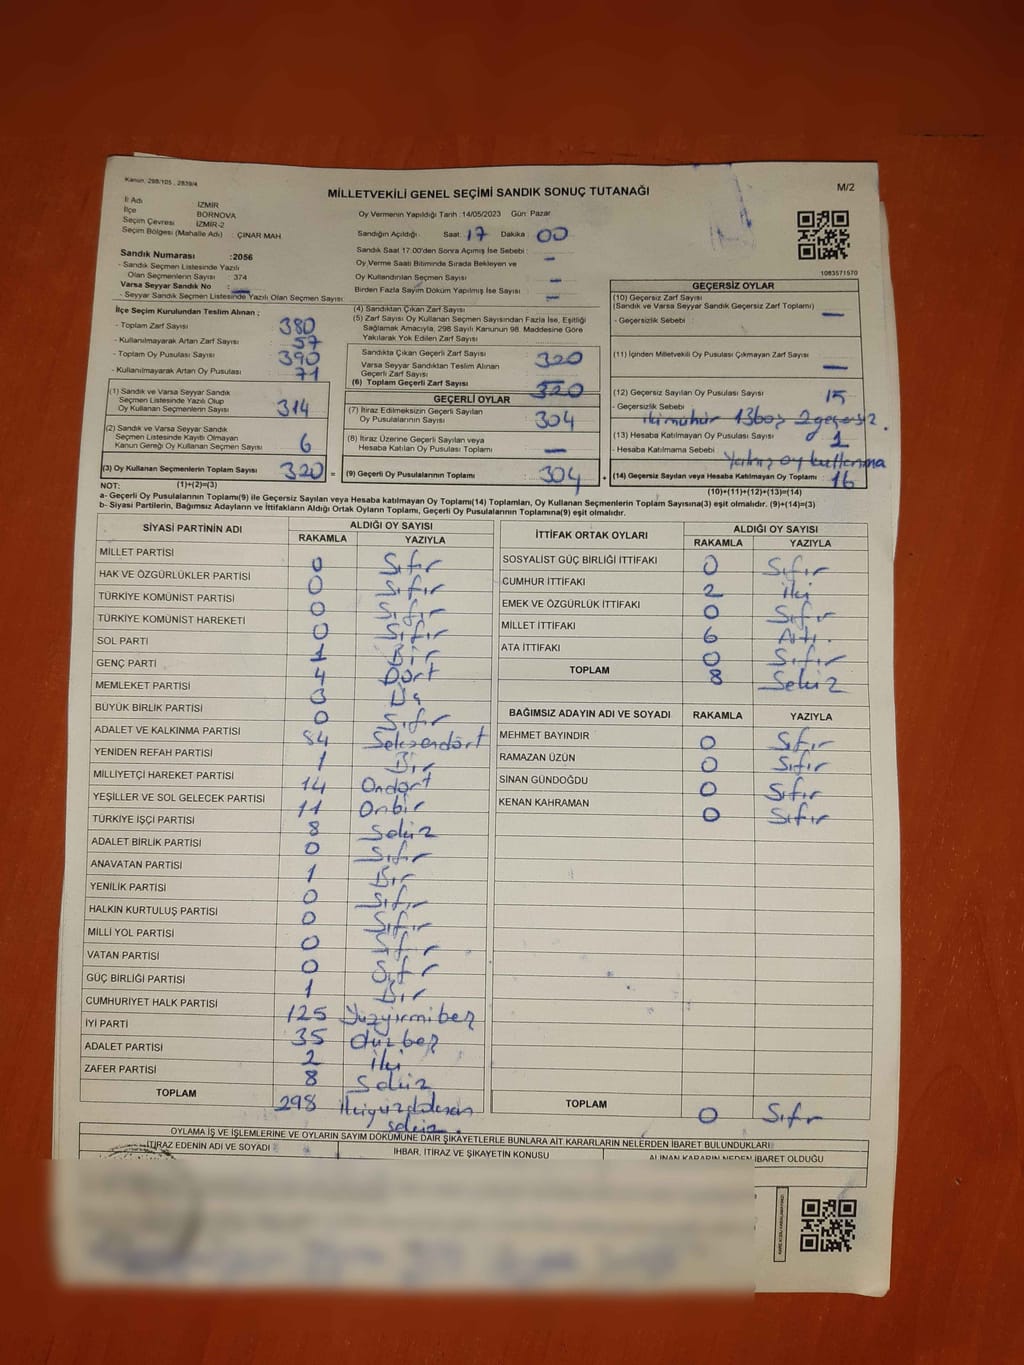 Kanun, 298/105 , 2839/4
MİLLETVEKİLİ GENEL SEÇİMİ SANDIK SONUÇ TUTANAĞI
M/2
İl Adı İZMİR
İlçe BORNOVA
Seçim Çevresi İZMİR-2
Seçim Bölgesi (Mahalle Adı) : ÇINAR MAH
Oy Vermenin Yapıldığı Tarih :14/05/2023 Gün: Pazar
Sandığın Açıldığı : Saat: 17 Dakika : 00
Sandık Saat 17:00'den Sonra Açımış İse Sebebi :
Oy Verme Saati Bitiminde Sırada Bekleyen ve –
Oy Kullandırılan Seçmen Sayısı –
Birden Fazla Sayım Döküm Yapılmış İse Sayısı : –
1083571570
Sandık Numarası :2056
- Sandık Seçmen Listesinde Yazılı
Olan Seçmenlerin Sayısı : 374
Varsa Seyyar Sandık No : –
- Seyyar Sandık Seçmen Listesinde Yazılı Olan Seçmen Sayısı: –
İlçe Seçim Kurulundan Teslim Alınan ;
- Toplam Zarf Sayısı : 380
- Kullanılmayarak Artan Zarf Sayısı : 57
- Toplam Oy Pusulası Sayısı : 390
- Kullanılmayarak Artan Oy Pusulası : 71
(1) Sandık ve Varsa Seyyar Sandık
Seçmen Listesinde Yazılı Olup
Oy Kullanan Seçmenlerin Sayısı : 314
(2) Sandık ve Varsa Seyyar Sandık
Seçmen Listesinde Kayıtlı Olmayan
Kanun Gereği Oy Kullanan Seçmen Sayısı : 6
(3) Oy Kullanan Seçmenlerin Toplam Sayısı : 320 =
(1)+(2)=(3)
(4) Sandıktan Çıkan Zarf Sayısı :
(5) Zarf Sayısı Oy Kullanan Seçmen Sayısından Fazla İse, Eşitliği
Sağlamak Amacıyla, 298 Sayılı Kanunun 98. Maddesine Göre
Yakılarak Yok Edilen Zarf Sayısı :
Sandıkta Çıkan Geçerli Zarf Sayısı : 320
Varsa Seyyar Sandıktan Teslim Alınan
Geçerli Zarf Sayısı : –
(6) Toplam Geçerli Zarf Sayısı : 320
GEÇERLİ OYLAR
(7) İtiraz Edilmeksizin Geçerli Sayılan
Oy Pusulalarının Sayısı : 304
(8) İtiraz Üzerine Geçerli Sayılan veya
Hesaba Katılan Oy Pusulası Toplamı : –
(9) Geçerli Oy Pusulalarının Toplamı : 304 +
GEÇERSİZ OYLAR
(10) Geçersiz Zarf Sayısı
(Sandık ve Varsa Seyyar Sandık Geçersiz Zarf Toplamı) : –
- Geçersizlik Sebebi :
(11) İçinden Milletvekili Oy Pusulası Çıkmayan Zarf Sayısı : –
(12) Geçersiz Sayılan Oy Pusulası Sayısı : 15
- Geçersizlik Sebebi : iki mühür 13 boş 2 geçersiz.
(13) Hesaba Katılmayan Oy Pusulası Sayısı : 1
- Hesaba Katılmama Sebebi : Yanlış oy kullanma
(14) Geçersiz Sayılan veya Hesaba Katılmayan Oy Toplamı : 16
(10)+(11)+(12)+(13)=(14)
NOT:
a- Geçerli Oy Pusulalarının Toplamı(9) ile Geçersiz Sayılan veya Hesaba katılmayan Oy Toplamı(14) Toplamları, Oy Kullanan Seçmenlerin Toplam Sayısına(3) eşit olmalıdır. (9)+(14)=(3)
b- Siyasi Partilerin, Bağımsız Adayların ve İttifakların Aldığı Ortak Oyların Toplamı, Geçerli Oy Pusulalarının Toplamına(9) eşit olmalıdır.
SİYASİ PARTİNİN ADI ALDIĞI OY SAYISI
RAKAMLA YAZIYLA
MİLLET PARTİSİ 0 Sıfır
HAK VE ÖZGÜRLÜKLER PARTİSİ 0 Sıfır
TÜRKİYE KOMÜNİST PARTİSİ 0 Sıfır
TÜRKİYE KOMÜNİST HAREKETİ 0 Sıfır
SOL PARTİ 1 Bir
GENÇ PARTİ 4 Dört
MEMLEKET PARTİSİ 3 Üç
BÜYÜK BİRLİK PARTİSİ 0 Sıfır
ADALET VE KALKINMA PARTİSİ 84 Seksendört
YENİDEN REFAH PARTİSİ 1 Bir
MİLLİYETÇİ HAREKET PARTİSİ 14 Ondört
YEŞİLLER VE SOL GELECEK PARTİSİ 11 Onbir
TÜRKİYE İŞÇİ PARTİSİ 8 Sekiz
ADALET BİRLİK PARTİSİ 0 Sıfır
ANAVATAN PARTİSİ 1 Bir
YENİLİK PARTİSİ 0 Sıfır
HALKIN KURTULUŞ PARTİSİ 0 Sıfır
MİLLİ YOL PARTİSİ 0 Sıfır
VATAN PARTİSİ 0 Sıfır
GÜÇ BİRLİĞİ PARTİSİ 1 Bir
CUMHURİYET HALK PARTİSİ 125 Yüzyirmibeş
İYİ PARTİ 35 Otuzbeş
ADALET PARTİSİ 2 İki
ZAFER PARTİSİ 8 Sekiz
TOPLAM 298 İkiyüzdoksan
sekiz.
İTTİFAK ORTAK OYLARI ALDIĞI OY SAYISI
RAKAMLA YAZIYLA
SOSYALİST GÜÇ BİRLİĞİ İTTİFAKI 0 Sıfır
CUMHUR İTTİFAKI 2 İki
EMEK VE ÖZGÜRLÜK İTTİFAKI 0 Sıfır
MİLLET İTTİFAKI 6 Altı.
ATA İTTİFAKI 0 Sıfır
TOPLAM 8 Sekiz
BAĞIMSIZ ADAYIN ADI VE SOYADI RAKAMLA YAZIYLA
MEHMET BAYINDIR 0 Sıfır
RAMAZAN ÜZÜN 0 Sıfır
SİNAN GÜNDOĞDU 0 Sıfır
KENAN KAHRAMAN 0 Sıfır
TOPLAM 0 Sıfır
OYLAMA İŞ VE İŞLEMLERİNE VE OYLARIN SAYIM DÖKÜMÜNE DAİR ŞİKAYETLERLE BUNLARA AİT KARARLARIN NELERDEN İBARET BULUNDUKLARI
İTİRAZ EDENİN ADI VE SOYADI İHBAR, İTİRAZ VE ŞİKAYETİN KONUSU ALINAN KARARIN NEDEN İBARET OLDUĞU